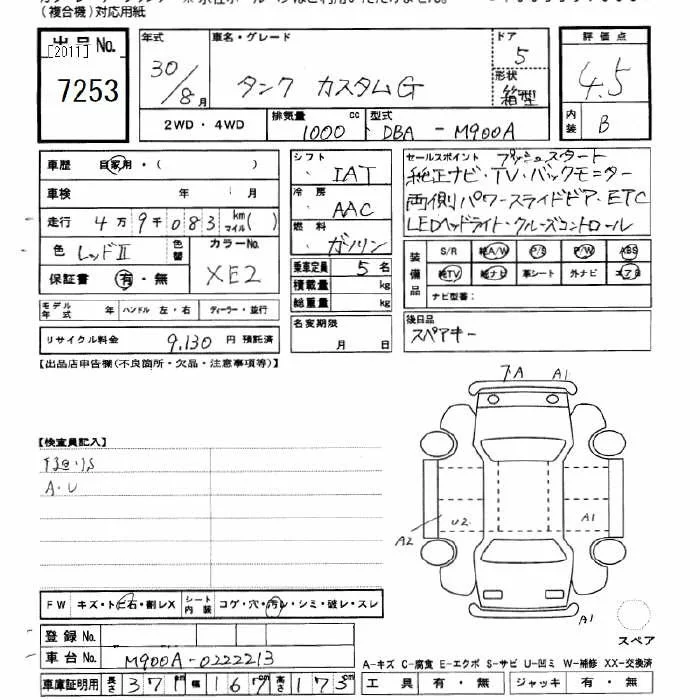 (複合機)対応用紙
出品No.
[2011]
7253
年式
30/8月
車名・グレード
タンク カスタムG
ドア
5
形状
箱型
評価点
4.5
内装
B
2WD・4WD
排気量
1000 cc
型式
DBA - M900A
車歴 自家用・( )
車検 年 月
走行 4万9千083 km マイル( )
色 レッドII
色替
カラーNo.
XE2
保証書 有・無
モデル年式 年 ハンドル 左・右 ディーラー・並行
リサイクル料金 9,130 円 預託済
シフト
IAT
冷房
AAC
燃料
ガソリン
乗車定員 5名
積載量 kg
総重量 kg
名変期限
月 日
セールスポイント プッシュスタート
純正ナビ・TV・バックモニター
両側パワースライドドア・ETC
LEDヘッドライト・クルーズコントロール
装備品
S/R 純A/W P/S P/W ABS
純TV 純ナビ 革シート 外ナビ エアB
ナビ型番:
後日品
スペアキー
【出品店申告欄(不良箇所・欠品・注意事項等)】
【検査員記入】
A・U
A1
A1
U2
A2
A1
スペア
FW キズ・トビ石・割レX
シート内装 コゲ・穴・汚レ・シミ・破レ・スレ
登録No.
車台No. M900A-0222213
車庫証明用 長さ 371 幅 167 高さ 173cm
A-キズ C-腐食 E-エクボ S-サビ U-凹ミ W-補修 XX-交換済
工具 有・無 ジャッキ 有・無